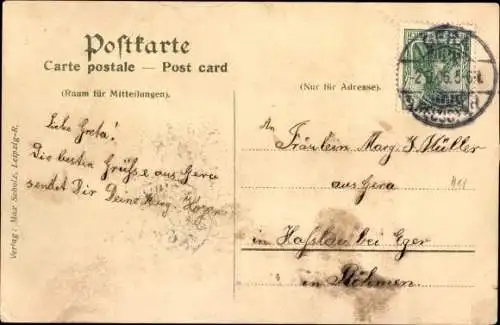 Postkarte
Carte postale — Post card
(Raum für Mitteilungen.)
(Nur für Adresse.)
Liebe Greta!
Die besten Grüße aus Gera
sendet Dir Deine
An
Fräulein Marg. J. Müller
aus Gera
in Haslau bei Eger
in Böhmen
Verlag: Max Scholz, Leipzig-R.